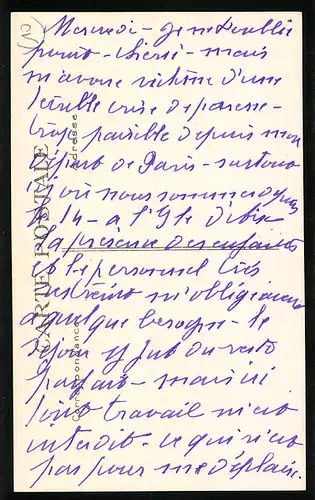 Mercredi - Je ne t'oublie
point - chérie - mais
m'avoue victime d'une
terrible crise de paresse -
trop paisible depuis mon
départ de Paris - surtout
ici où nous sommes depuis
le 14 - à l'
La présence des enfants
et le personnel très
restreint m'obligeaient
à quelque besogne - le
séjour y fut du reste
parfait - mais ici
tout travail m'est
interdit - ce qui n'est
pas pour me déplaire.
CARTE POSTALE
Correspondance
Adresse